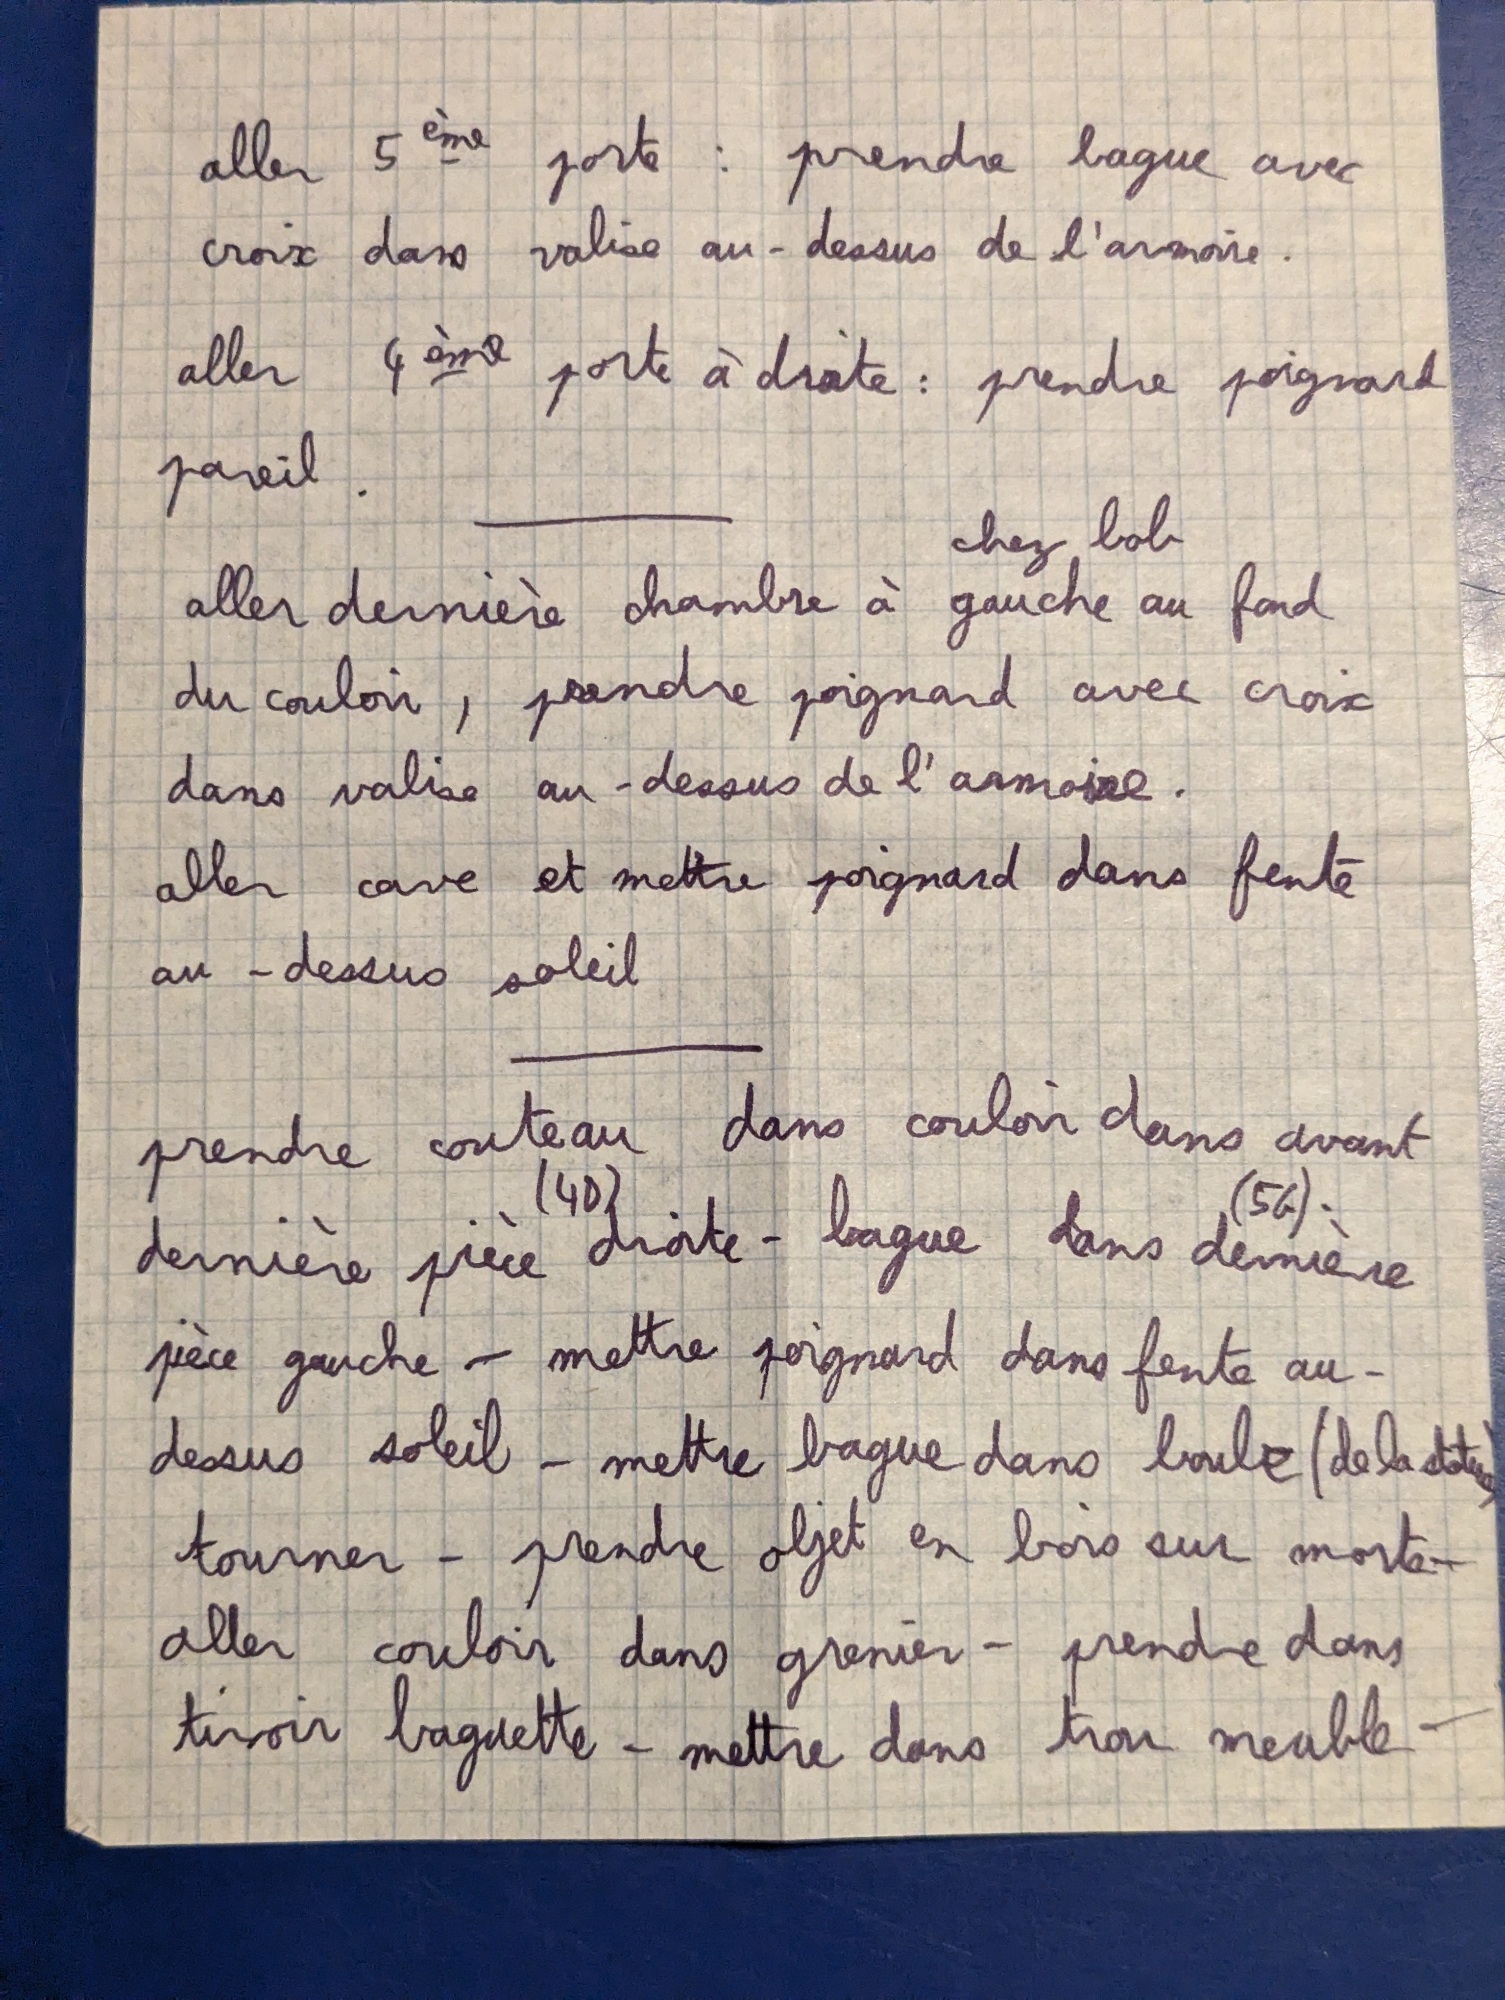 aller 5ème porte : prendre bague avec
croix dans valise au-dessus de l'armoire.
aller 4ème porte à droite : prendre poignard
pareil.
chez bob
aller dernière chambre à gauche au fond
du couloir, prendre poignard avec croix
dans valise au-dessus de l'armoire.
aller cave et mettre poignard dans fente
au-dessus soleil
prendre couteau dans couloir dans avant
(4D) (5G).
dernière pièce droite - bague dans dernière
pièce gauche - mettre poignard dans fente au-
dessus soleil - mettre bague dans boule (de la statue)
tourner - prendre objet en bois sur morte -
aller couloir dans grenier - prendre dans
tiroir baguette - mettre dans trou meuble -